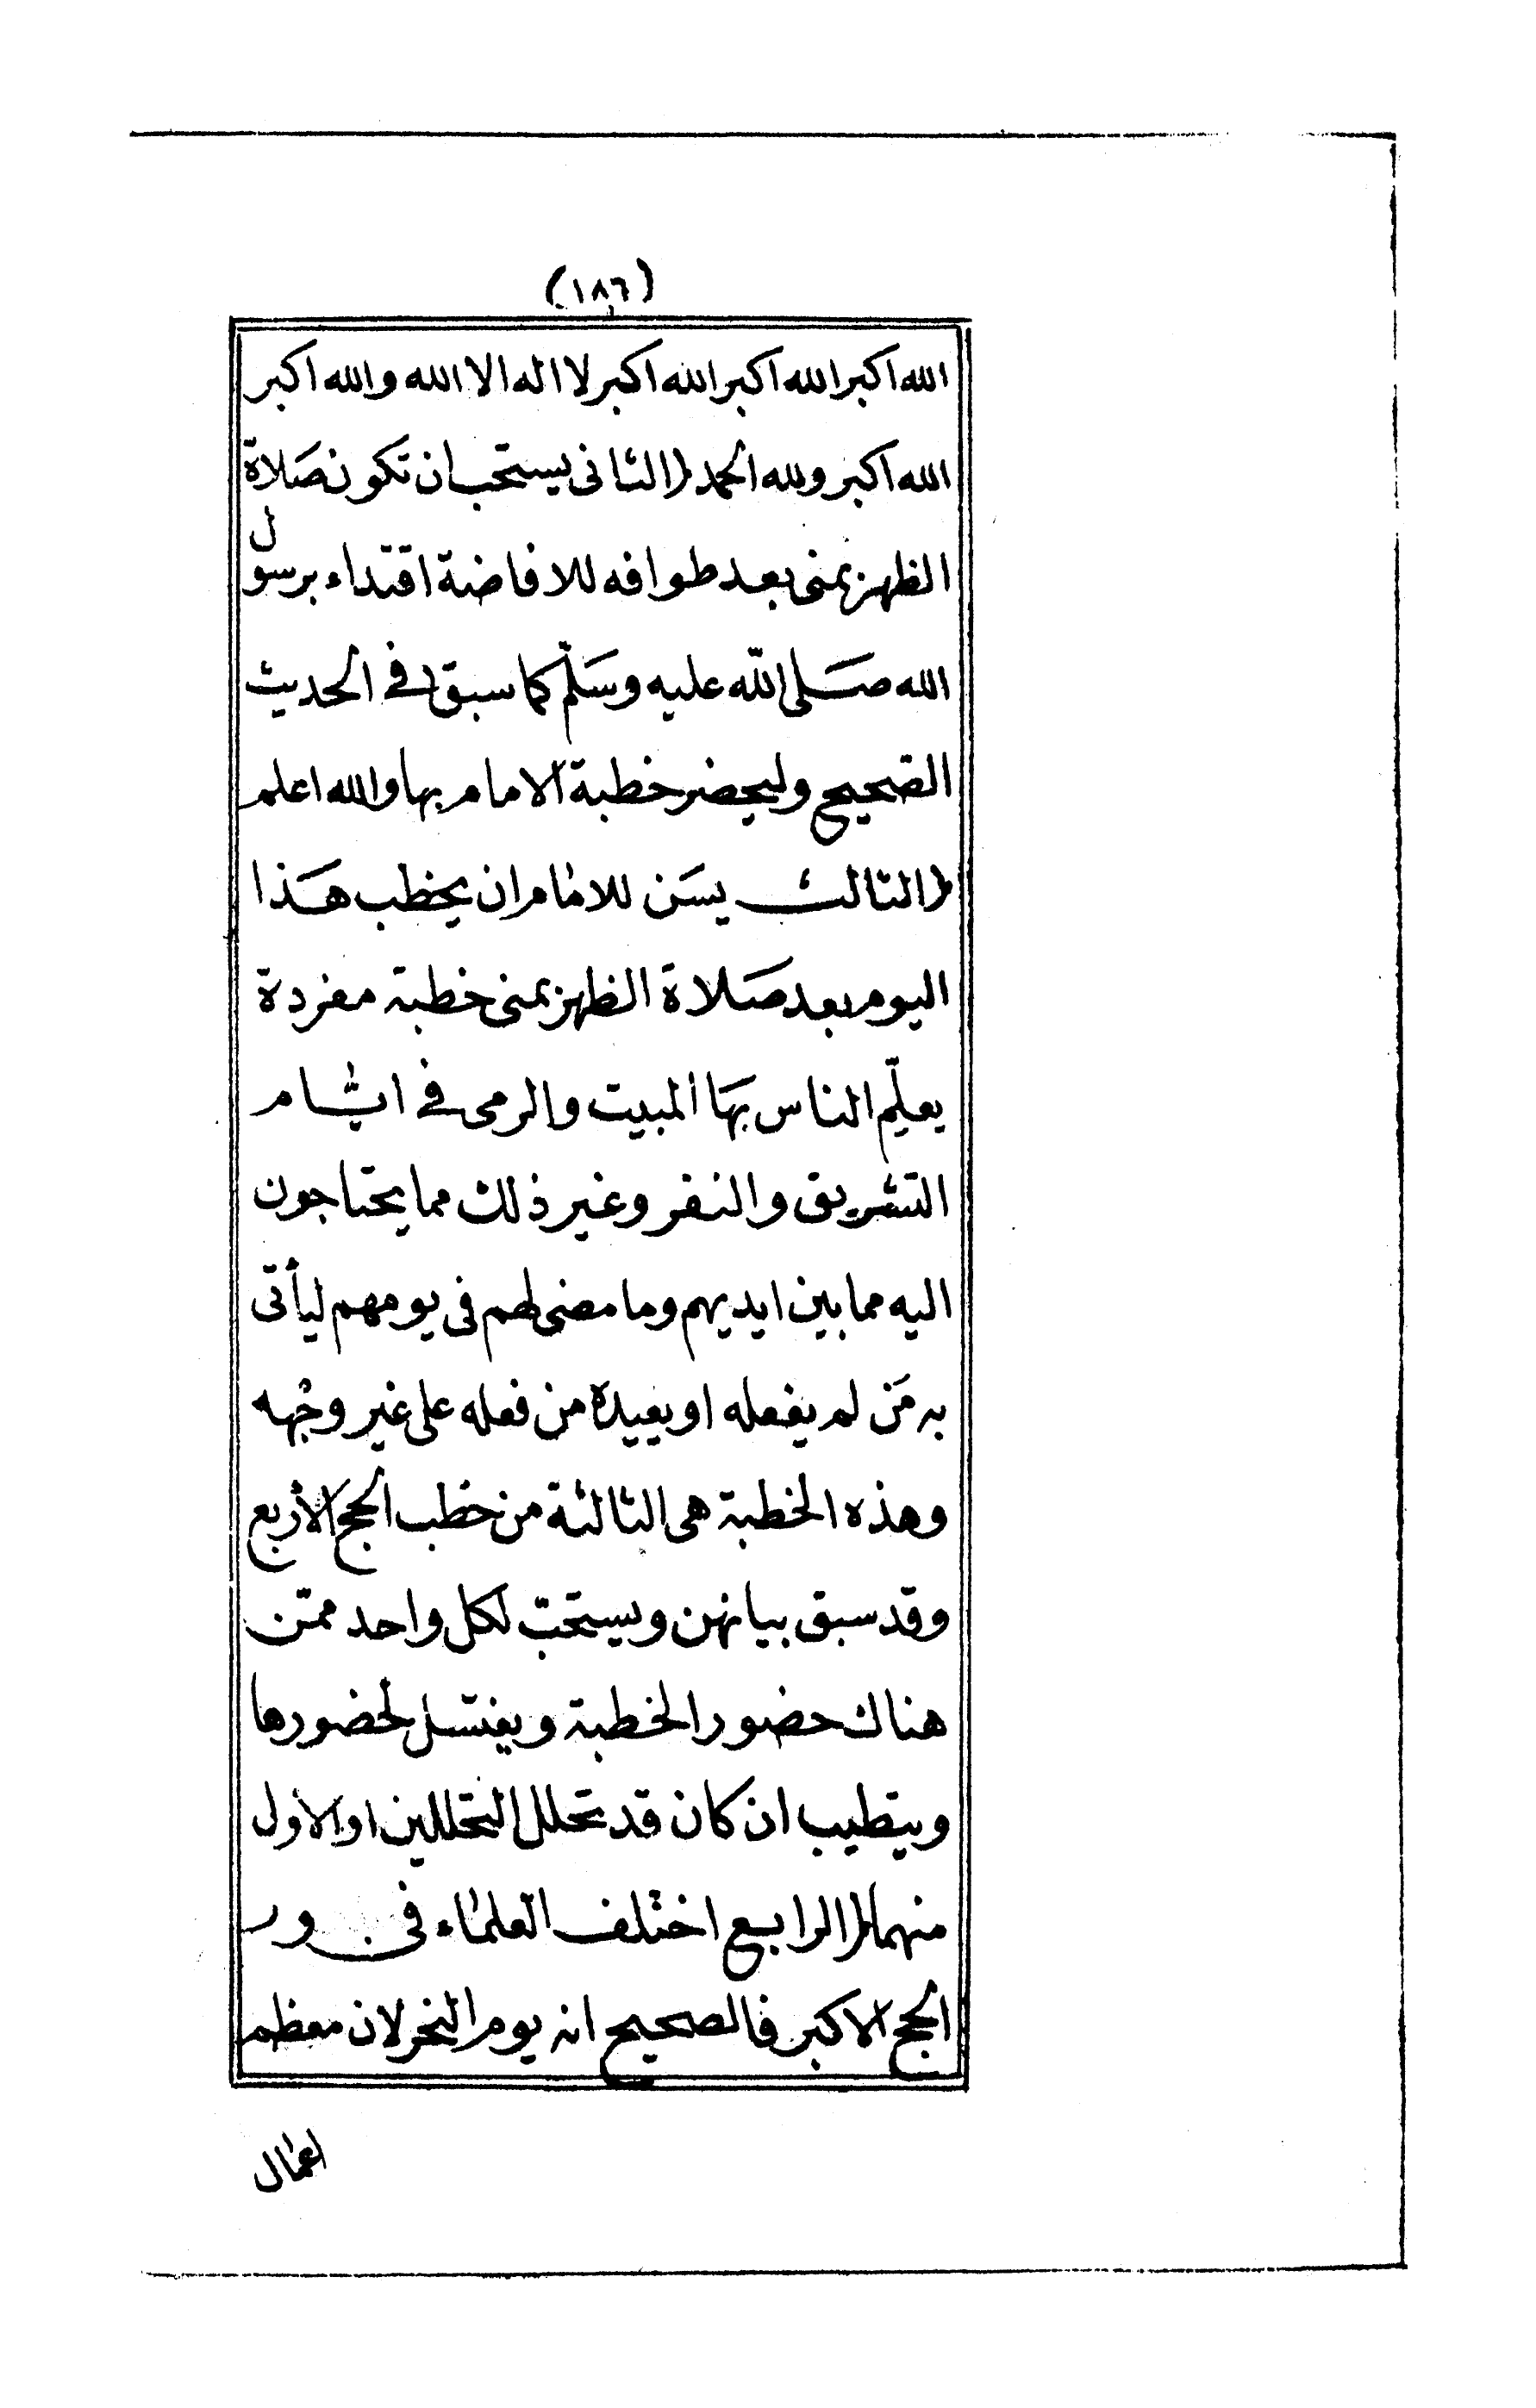 (١٨٦)
الله اكبر الله اكبر الله اكبر لا اله الا الله والله اكبر
الله اكبر ولله الحمد (الثانى يستحب ان تكون صَلاة
الظهر بمنى بعد طوافه للافاضة اقتداء برسول
الله صَلى اللّه عليه وسَلّم كما سبق فى الحديث
الصحيح وليحضر خطبة الامام بها والله اعلم
(الثالث يسَن للامام ان يخطب هَذا
اليوم بعد صَلاة الظهر بمنى خطبة مفردة
يعلّم الناس بهَا المبيت والرمى فى ايّام
التشريق والنفر وغير ذلك مما يحتاجون
اليه مما بين ايديهم وما مضى لهم فى يومهم ليأتى
به مَن لم يفعله او يعيده من فعله على غير وجْهه
وهذه الخطبة هى الثالثة من خطب الحج الأربع
وقد سبق بيانهن ويستحبّ لكل واحد ممّن
هناك حضور الخطبة ويغتسل لحضورها
ويتطيب ان كان قد تحلل التحللين او الأول
منهما (الرابع اختلف العلماء فى
الحج الاكبر فالصحيح انه يوم النحر لان معظم
اعمال